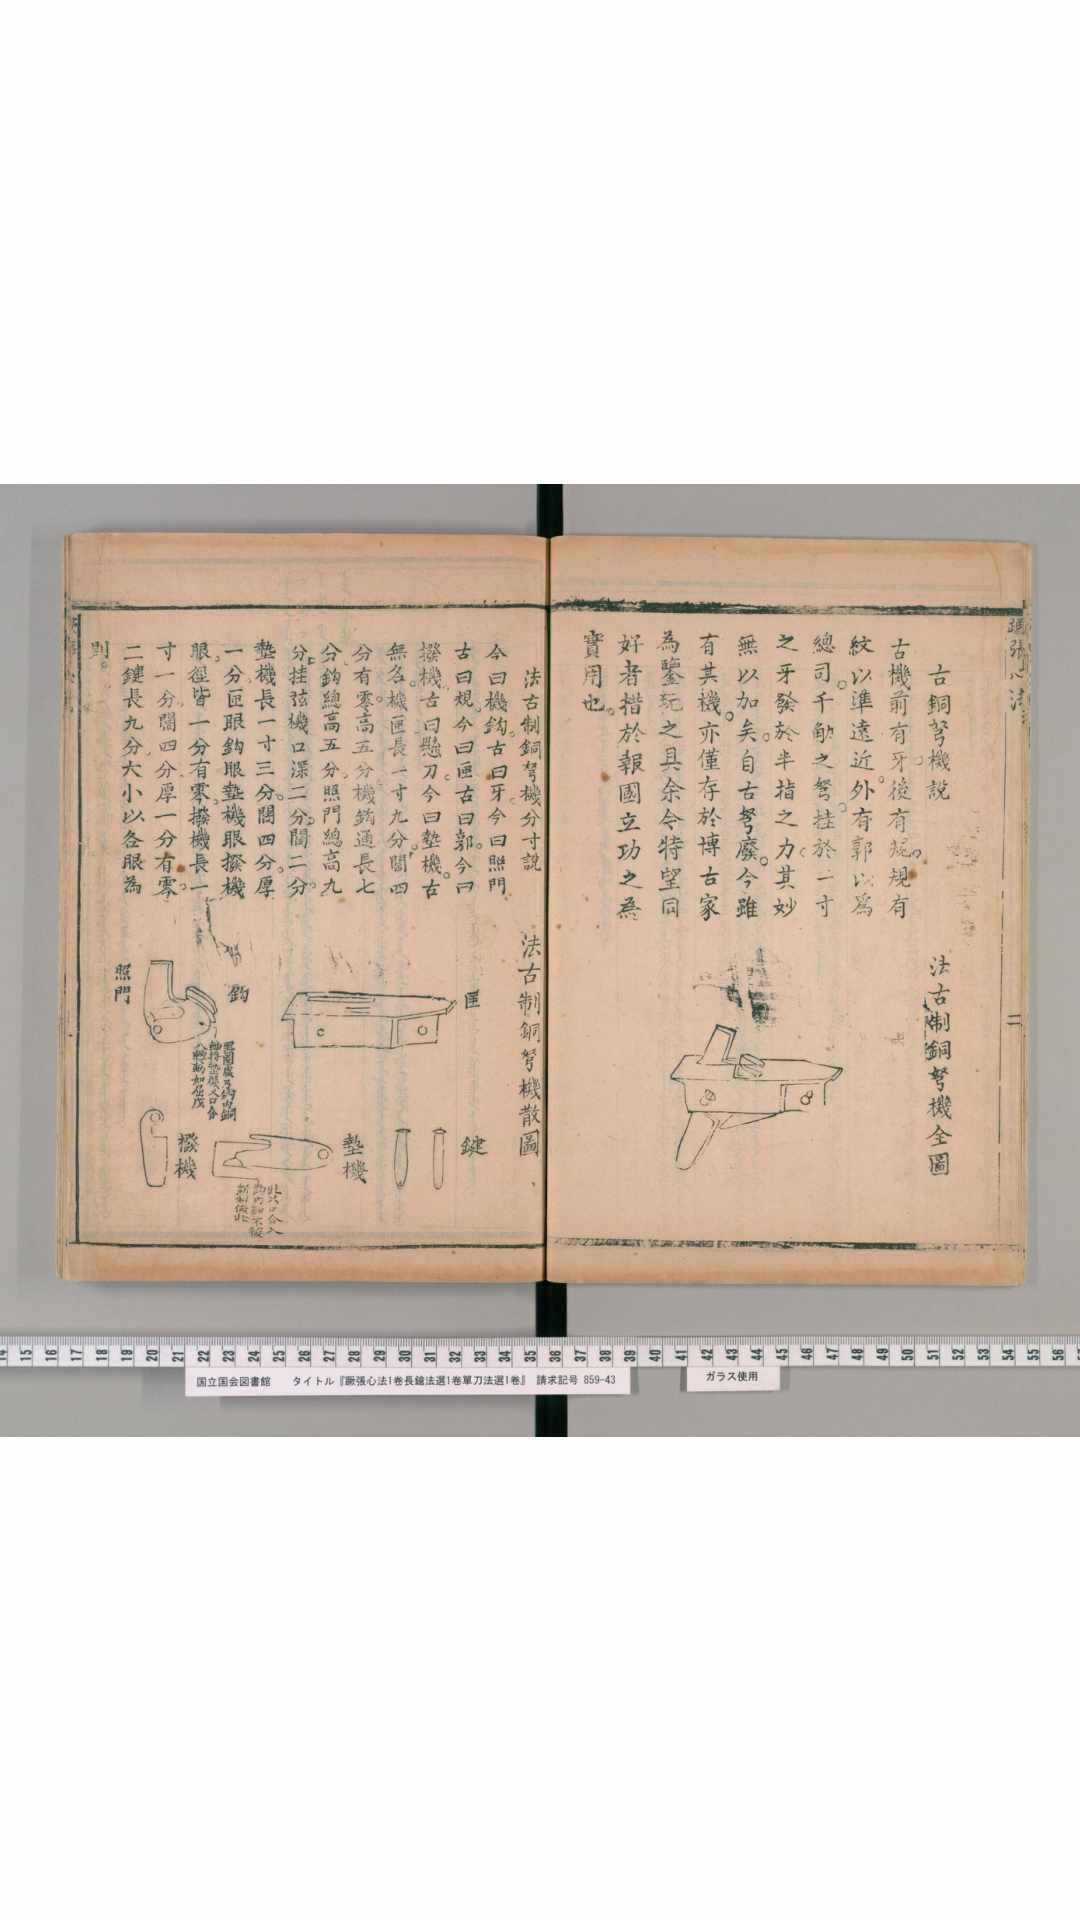 古銅弩機說
古機前有牙後有規規有
紋以準遠近外有郭以爲
總司千鈞之弩挂於一寸
之牙發於半指之力其妙
無以加矣自古弩廢今雖
有其機亦僅存於博古家
為鑒玩之具余今特望同
好者措於報國立功之為
實用也
法古制銅弩機全圖
二
法古制銅弩機分寸說
今曰機鈎古曰牙今曰照門
古曰規今曰匣古曰郭今曰
撥機古曰懸刀今曰墊機古
無名機匣長一寸九分闊四
分有零高五分機鈎通長七
分鈎總高五分照門總高九
分挂弦機口深二分闊二分
墊機長一寸三分闊四分厚
一分匣眼鈎眼墊機眼撥機
眼徑皆一分有零撥機長一
寸一分闊四分厚一分有零
二鍵長九分大小以各眼為
則
法古制銅弩機散圖
匣
鈎
照門
鍵
墊機
此齒口合入
撥機
国立国会図書館 タイトル『蹶張心法1巻長鎗法選1巻單刀法選1巻』 請求記号 859-43
ガラス使用
14 15 16 17 18 19 20 21 22 23 24 25 26 27 28 29 30 31 32 33 34 35 36 37 38 39 40 41 42 43 44 45 46 47 48 49 50 51 52 53 54 55 56